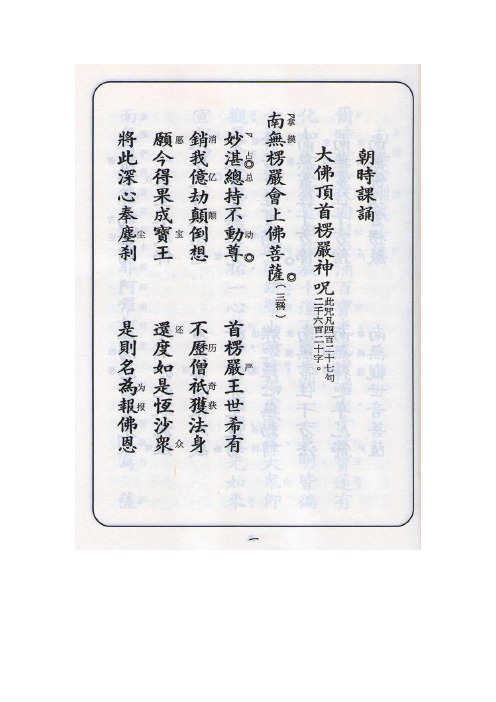 朝時課誦
大佛頂首楞嚴神呪此咒凡四百二十七句二千六百二十字。
南無楞嚴會上佛菩薩(三稱)
拿摸
妙湛總持不動尊 首楞嚴王世希有
占 总 动 严
銷我億劫顛倒想 不歷僧祇獲法身
消 亿 颠 历 奇 获
願今得果成寶王 還度如是恆沙衆
愿 宝 还 众
將此深心奉塵剎 是則名為報佛恩
尘 为 报
一